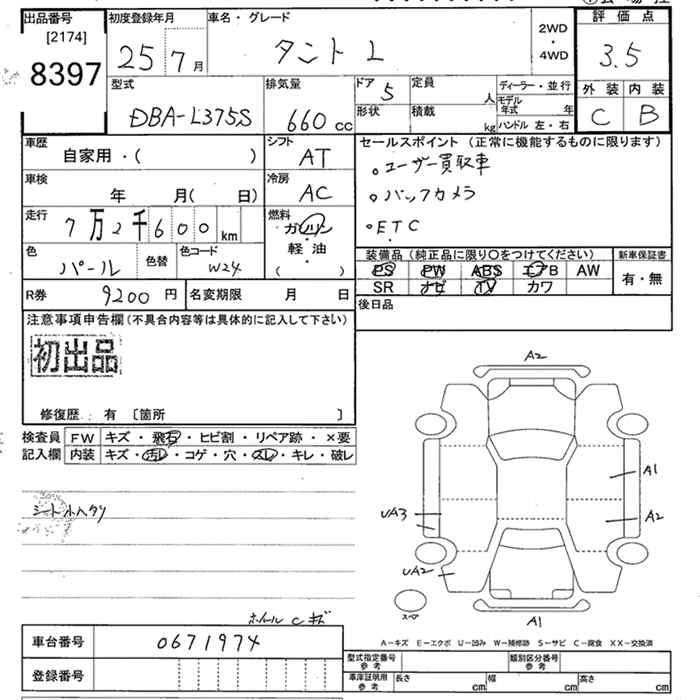 出品番号
[2174]
8397
初度登録年月
25 7月
車名・グレード
タント L
2WD
・
4WD
評価点
3.5
外装 内装
C B
型式
DBA-L375S
排気量
660 cc
ドア 5
形状
定員 人
積載 kg
ディーラー・並行
モデル年式 年
ハンドル 左・右
車歴
自家用・( )
シフト
AT
車検
年 月( 日)
冷房
AC
走行
7万2千600 km
燃料
ガソリン
・
軽・油
( )
色
パール
色替
色コード
W24
R券 9200 円
名変期限 月 日
セールスポイント(正常に機能するものに限ります)
。ユーザー買取車
。バックカメラ
。ETC
装備品(純正品に限り〇をつけてください)
PS PW ABS エアB AW
SR ナビ TV カワ
新車保証書
有・無
後日品
注意事項申告欄(不具合内容等は具体的に記入して下さい)
初出品
修復歴: 有 〔箇所 〕
検査員記入欄
FW キズ・飛石・ヒビ割・リペア跡・×要
内装 キズ・汚レ・コゲ・穴・スレ・キレ・破レ
シート小ヘタリ
ホイール Cキズ
A2
A1
A2
UA3
UA2
スペア
A1
A-キズ E-エクボ U-凹み W-補修跡 S-サビ C-腐食 XX-交換済
車台番号 0671974
登録番号
型式指定番号 参考
類別区分番号 参考
車庫証明用 参考
長さ cm 幅 cm 高さ cm